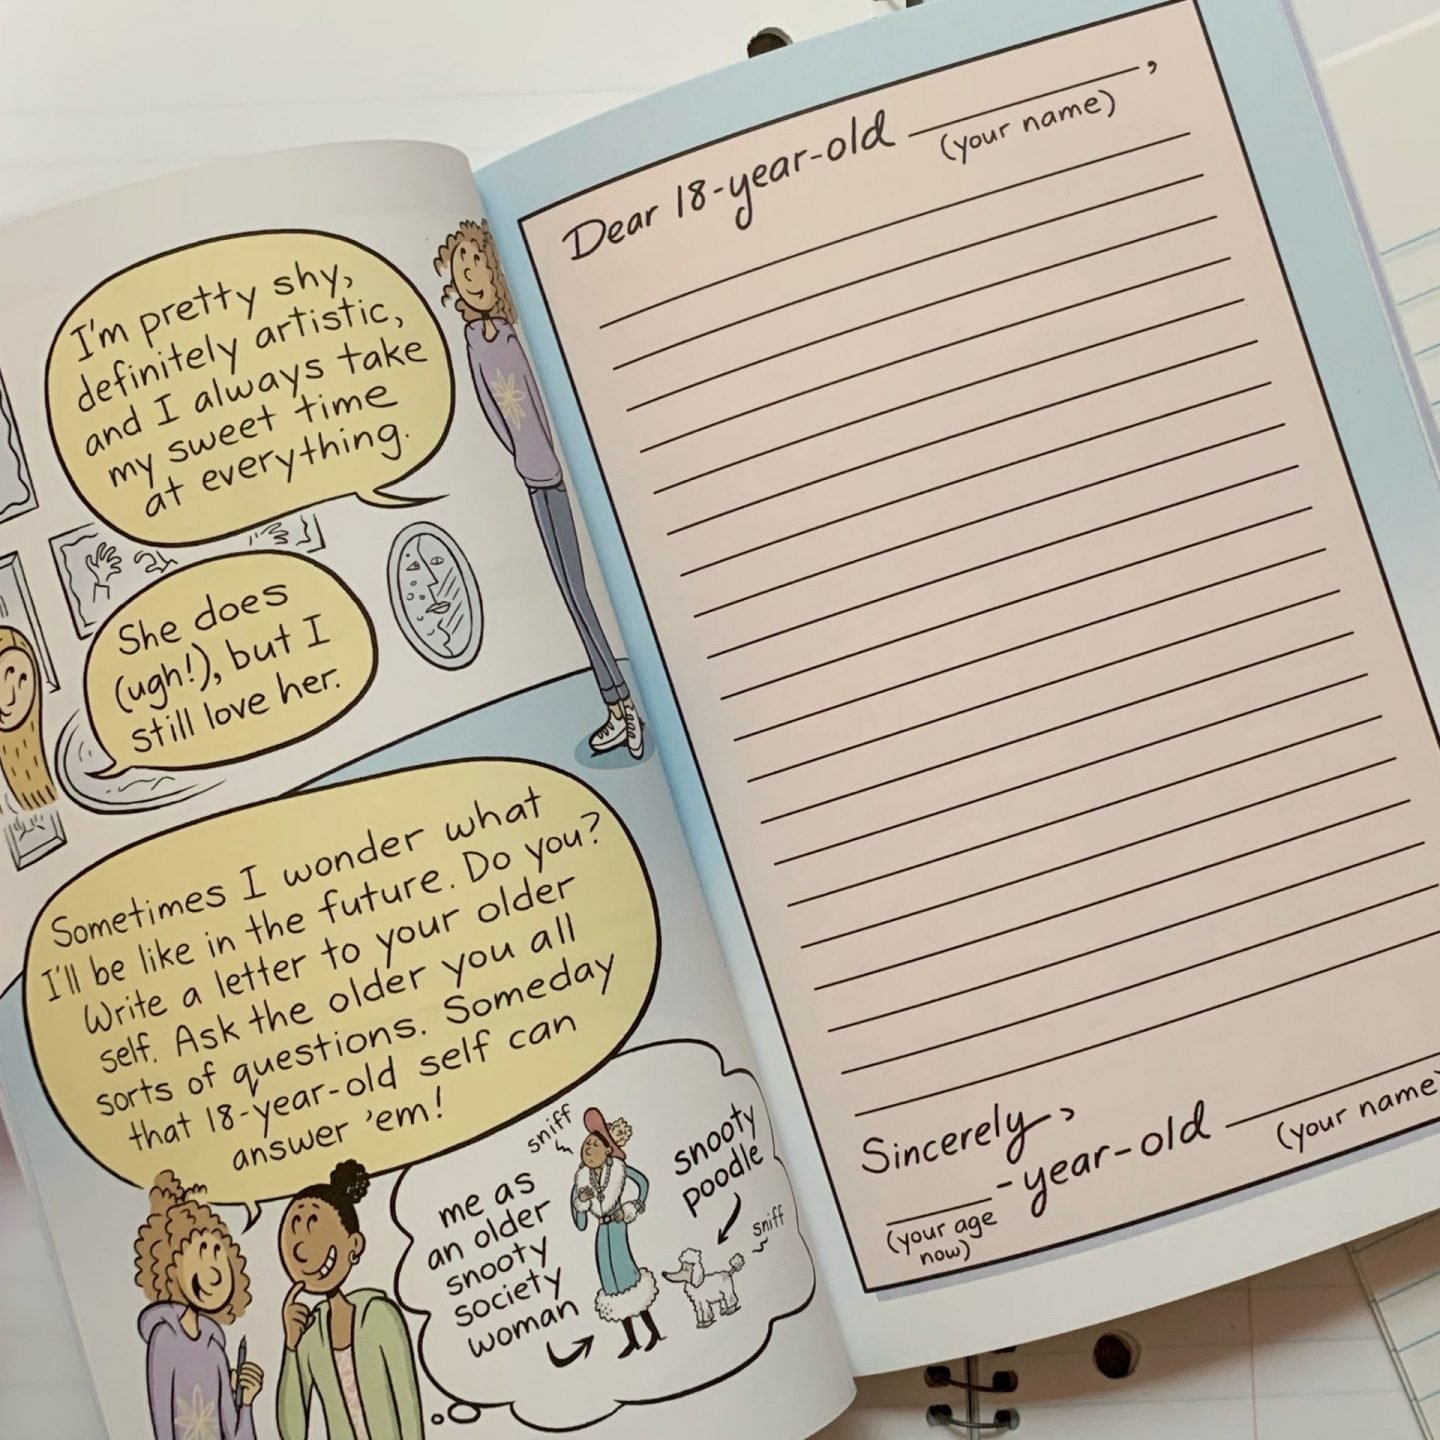 I'm pretty shy,
definitely artistic,
and I always take
my sweet time
at everything.
She does
(ugh!), but I
still love her.
Sometimes I wonder what
I'll be like in the future. Do you?
Write a letter to your older
self. Ask the older you all
sorts of questions. Someday
that 18-year-old self can
answer 'em!
sniff
me as
an older
snooty
society
woman
snooty
poodle
sniff
Dear 18-year-old ,
(your name)
Sincerely,
-year-old
(your age
now)
(your name)